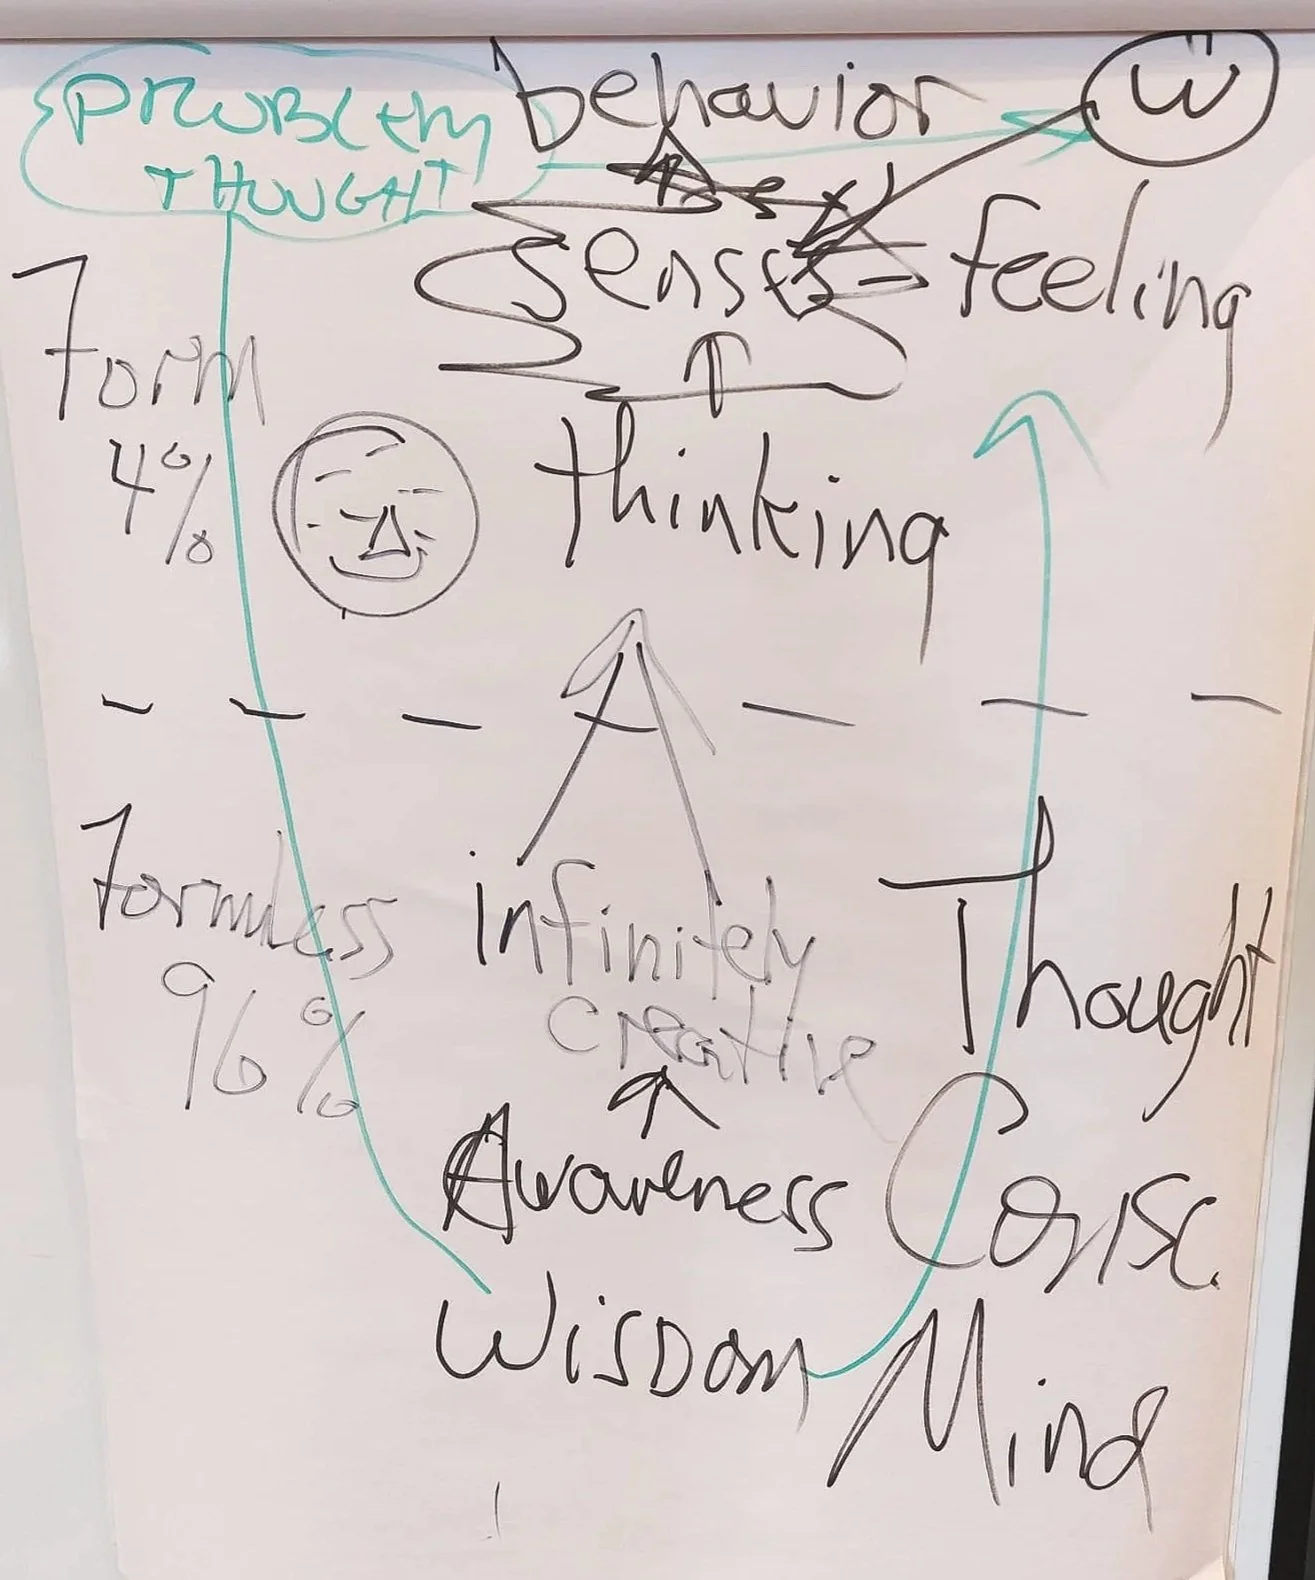 PROBLEM
THOUGHT
behavior
senses - feeling
Form
4%
thinking
Formless
96%
infinitely
creative
Thought
Awareness
Consc.
Wisdom
Mind